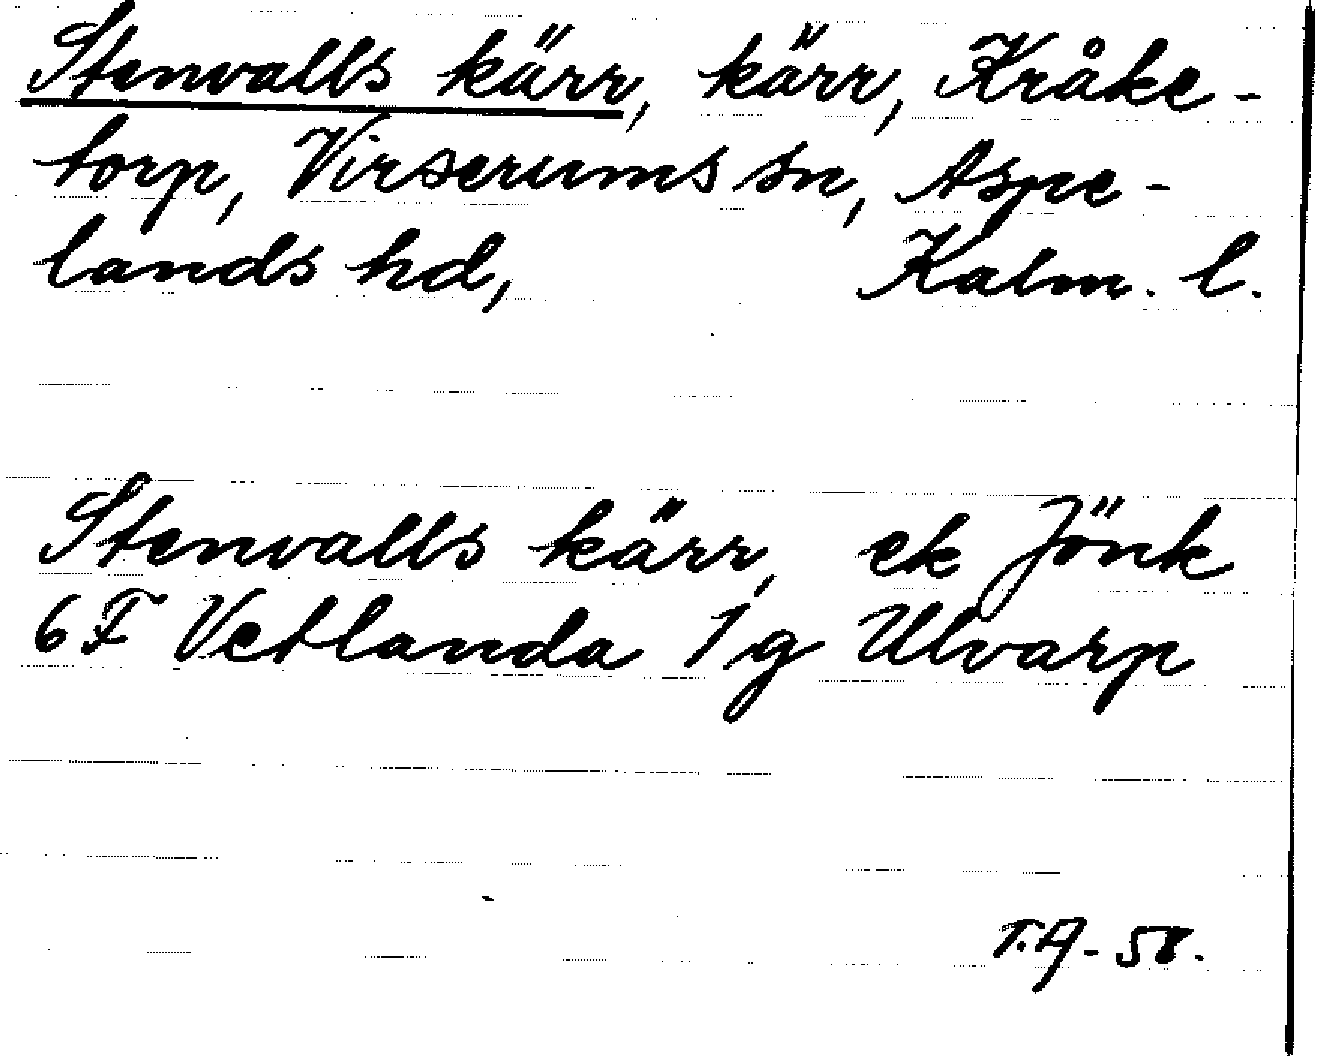 Stenvalls kärr, kärr, Kråke-
torp, Virserums sn, Aspe-
lands hd, Kalm. l.
Stenvalls kärr, ek Jönk
6 F Vetlanda 1 g Ulvarp
T.A-58.